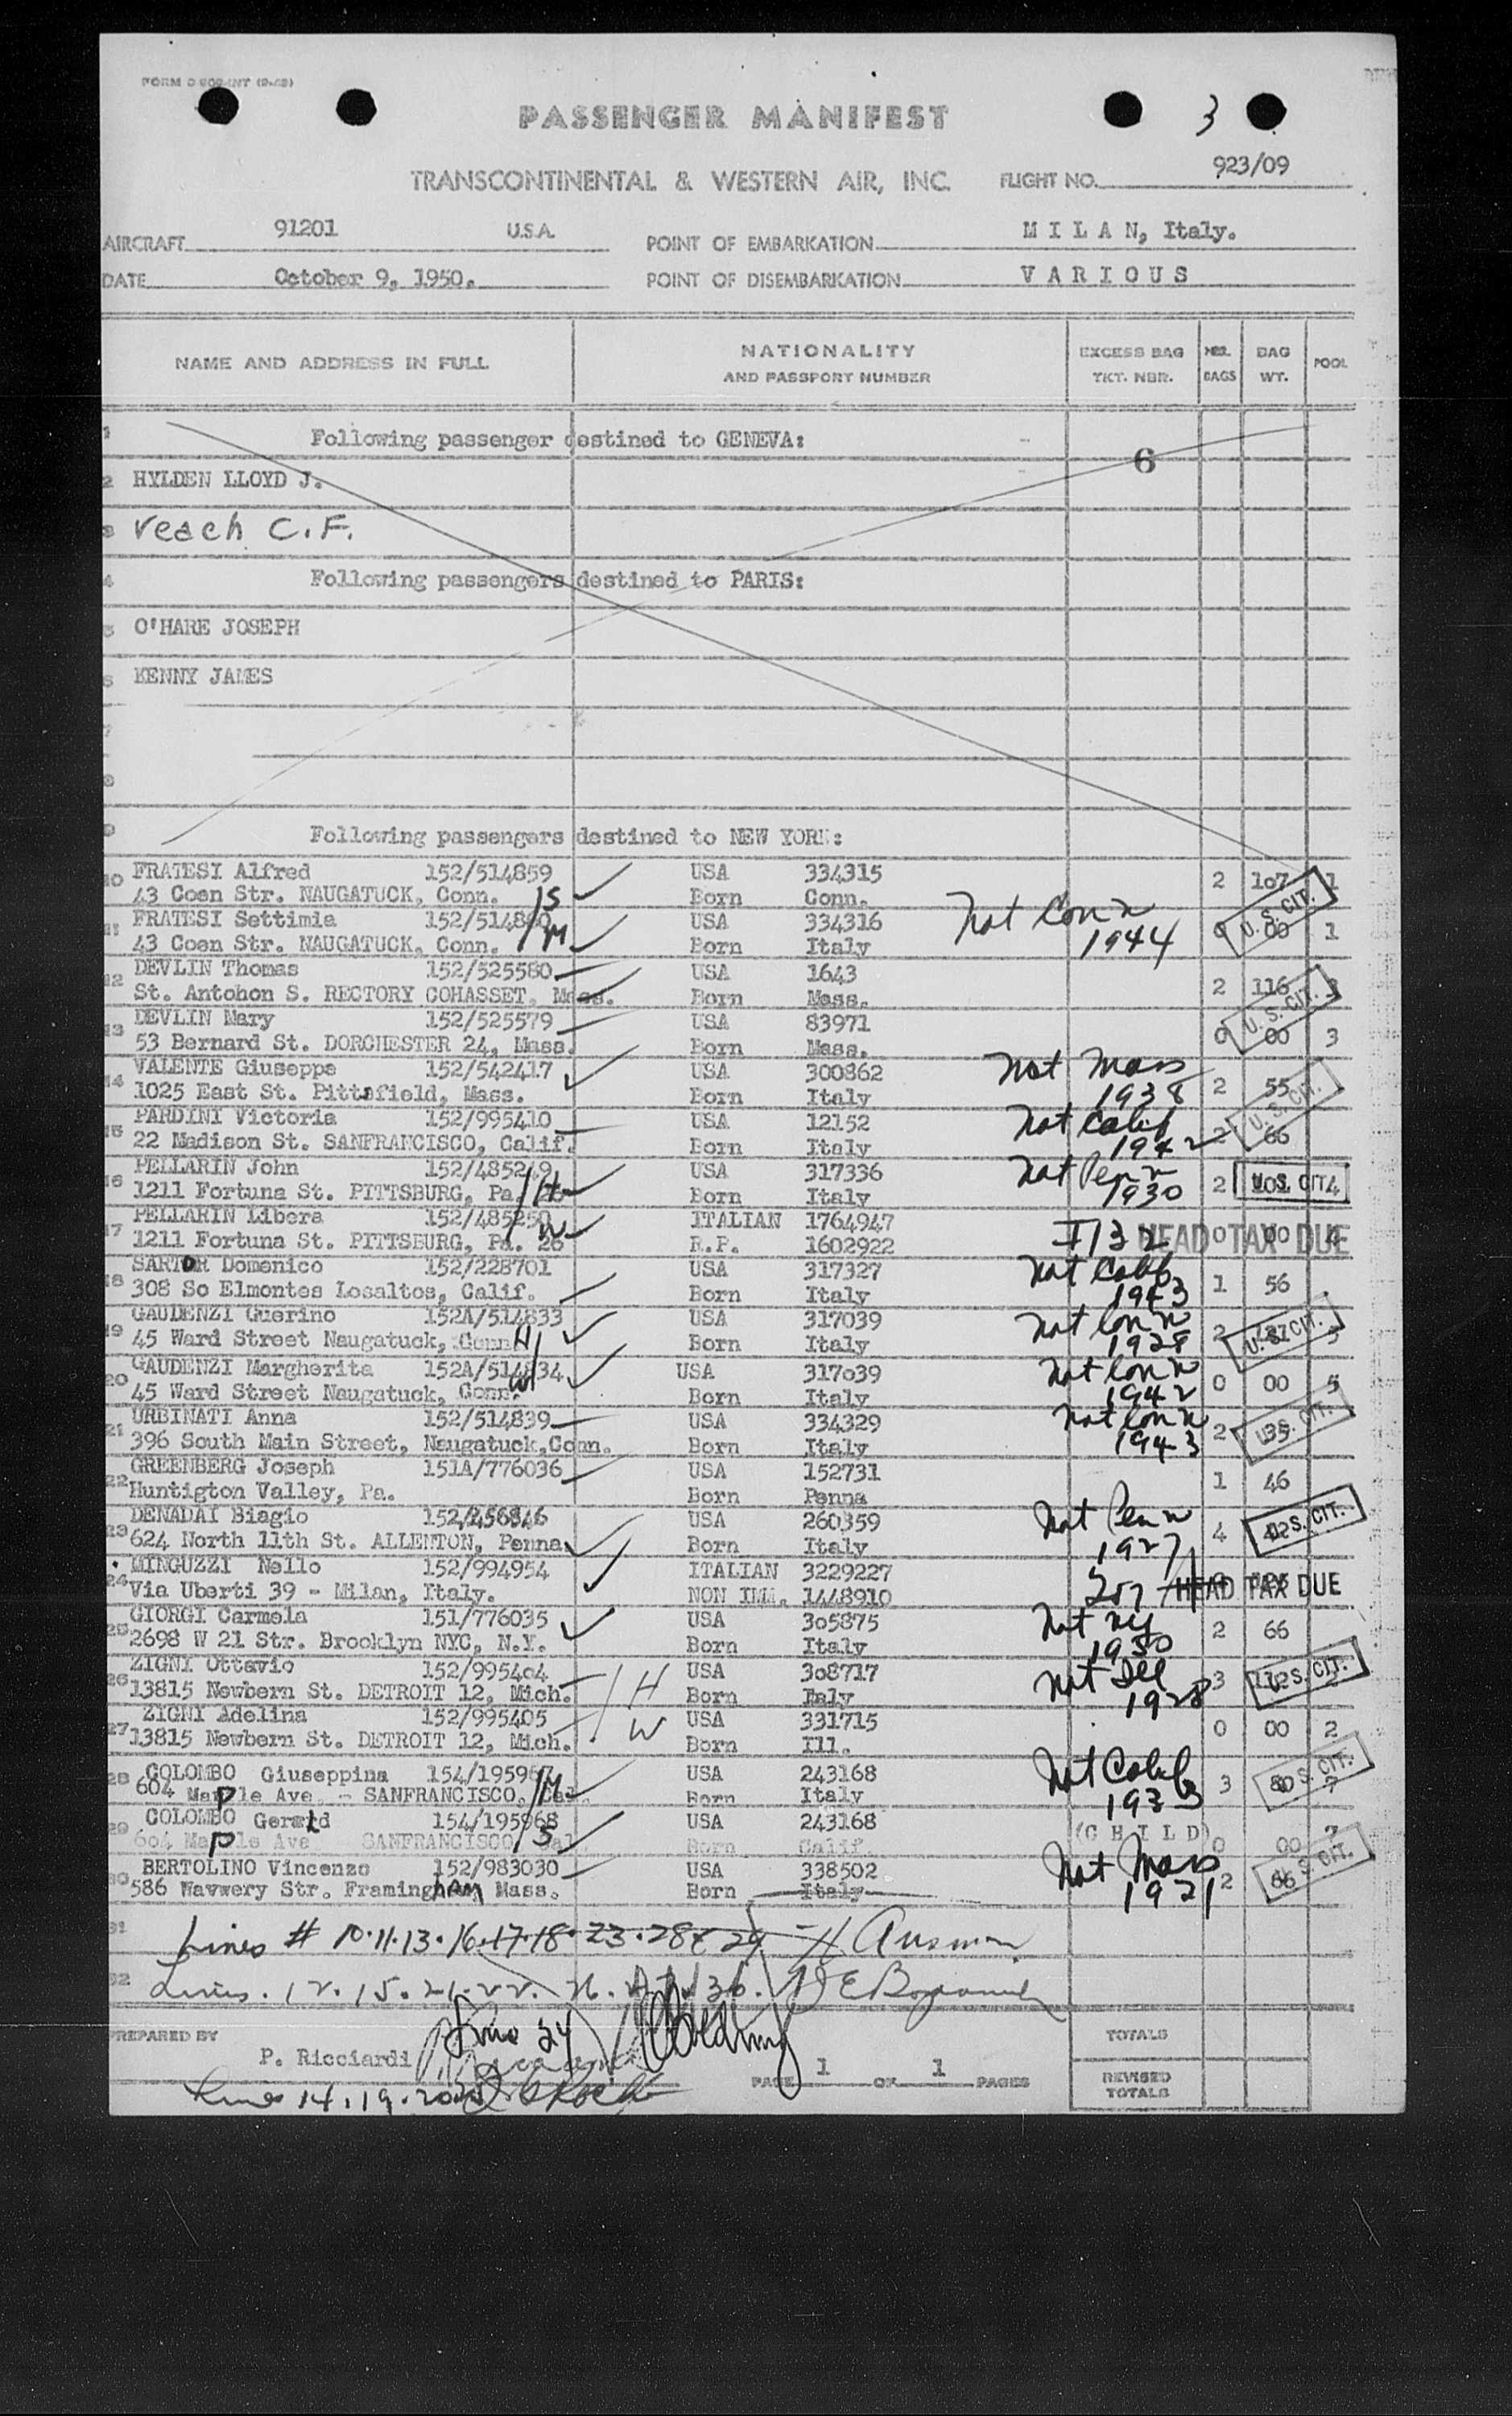 3
PASSENGER MANIFEST
TRANSCONTINENTAL & WESTERN AIR, INC. FLIGHT NO. 923/09
AIRCRAFT 91201 U.S.A. POINT OF EMBARKATION M I L A N, Italy.
DATE October 9, 1950. POINT OF DISEMBARKATION V A R I O U S
NAME AND ADDRESS IN FULL NATIONALITY AND PASSPORT NUMBER EXCESS BAG TKT. NBR. NBR. BAGS BAG WT. POOL
1 Following passenger destined to GENEVA:
6
2 HYLDEN LLOYD J.
3 Veach C.F.
4 Following passengers destined to PARIS:
5 O'HARE JOSEPH
6 KENNY JAMES
7
8
9 Following passengers destined to NEW YORK:
10 FRATESI Alfred 152/514859 USA 334315 2 107 1
43 Coen Str. NAUGATUCK, Conn. S Born Conn. U.S. CIT.
11 FRATESI Settimia 152/514860 USA 334316 Nat Conn 0 00 1
43 Coen Str. NAUGATUCK, Conn. M Born Italy 1944
12 DEVLIN Thomas 152/525580 USA 1643 2 116 3
St. Antohon S. RECTORY COHASSET, Mass. Born Mass. U.S. CIT.
13 DEVLIN Mary 152/525579 USA 83971 0 00 3
53 Bernard St. DORCHESTER 24, Mass. Born Mass.
14 VALENTE Giuseppe 152/542417 USA 300862 Nat Mass 2 55
1025 East St. Pittsfield, Mass. Born Italy 1938 U.S. CIT.
15 PARDINI Victoria 152/995410 USA 12152 Nat Calif 2 66
22 Madison St. SANFRANCISCO, Calif. Born Italy 1942
16 PELLARIN John 152/485249 USA 317336 Nat Penn 2 U.S. CIT. 4
1211 Fortuna St. PITTSBURG, Pa. H Born Italy 1930
17 PELLARIN Libera 152/485250 ITALIAN 1764947 HEAD TAX DUE 0 00 4
1211 Fortuna St. PITTSBURG, Pa. 26 W R.P. 1602922
18 SARTOR Domenico 152/228701 USA 317327 Nat Calif 1 56
308 So Elmontes Losaltos, Calif. Born Italy 1943
19 GAUDENZI Guerino 152A/514833 USA 317039 Nat Conn 2 U.S. CIT. 5
45 Ward Street Naugatuck, Conn H Born Italy 1928
20 GAUDENZI Margherita 152A/514834 USA 317039 Nat Conn 0 00 5
45 Ward Street Naugatuck, Conn. W Born Italy 1942
21 URBINATI Anna 152/514839 USA 334329 Nat Conn 2 35 U.S. CIT.
396 South Main Street, Naugatuck,Conn. Born Italy 1943
22 GREENBERG Joseph 151A/776036 USA 152731 1 46
Huntigton Valley, Pa. Born Penna
23 DENADAI Biagio 152/256846 USA 260359 Nat Penn 4 U.S. CIT.
624 North 11th St. ALLENTON, Penna. Born Italy 1927
24 MINGUZZI Nello 152/994954 ITALIAN 3229227 HEAD TAX DUE
Via Uberti 39 - Milan, Italy. NON IMM. 1448910
25 GIORGI Carmela 151/776035 USA 305875 Nat NY 2 66
2698 W 21 Str. Brooklyn NYC, N.Y. Born Italy 1950
26 ZIGNI Ottavio 152/995404 USA 308717 Nat Ill 3 112 U.S. CIT. 2
13815 Newbern St. DETROIT 12, Mich. H Born Italy 1928
27 ZIGNI Adelina 152/995405 USA 331715 0 00 2
13815 Newbern St. DETROIT 12, Mich. W Born Ill.
28 COLOMBO Giuseppina 154/195967 USA 243168 Nat Calif 3 80 U.S. CIT. 7
604 Maple Ave. - SANFRANCISCO, Cal. M Born Italy 1933
29 COLOMBO Gerald 154/195968 USA 243168 (C H I L D) 0 00 7
604 Maple Ave SANFRANCISCO, Cal S Born Calif
30 BERTOLINO Vincenzo 152/983030 USA 338502 Nat Mass 2 66 U.S. CIT.
586 Wavwery Str. Framingham Mass. Born Italy 1921
31 Lines # 10.11.13.16.17.18.23.28 & 29
32 Lines. 12.15.21.22. 26. 27. 30.
PREPARED BY Line 24
P. Ricciardi
Lines 14.19.20
PAGE 1 OF 1 PAGES
TOTALS
REVISED TOTALS